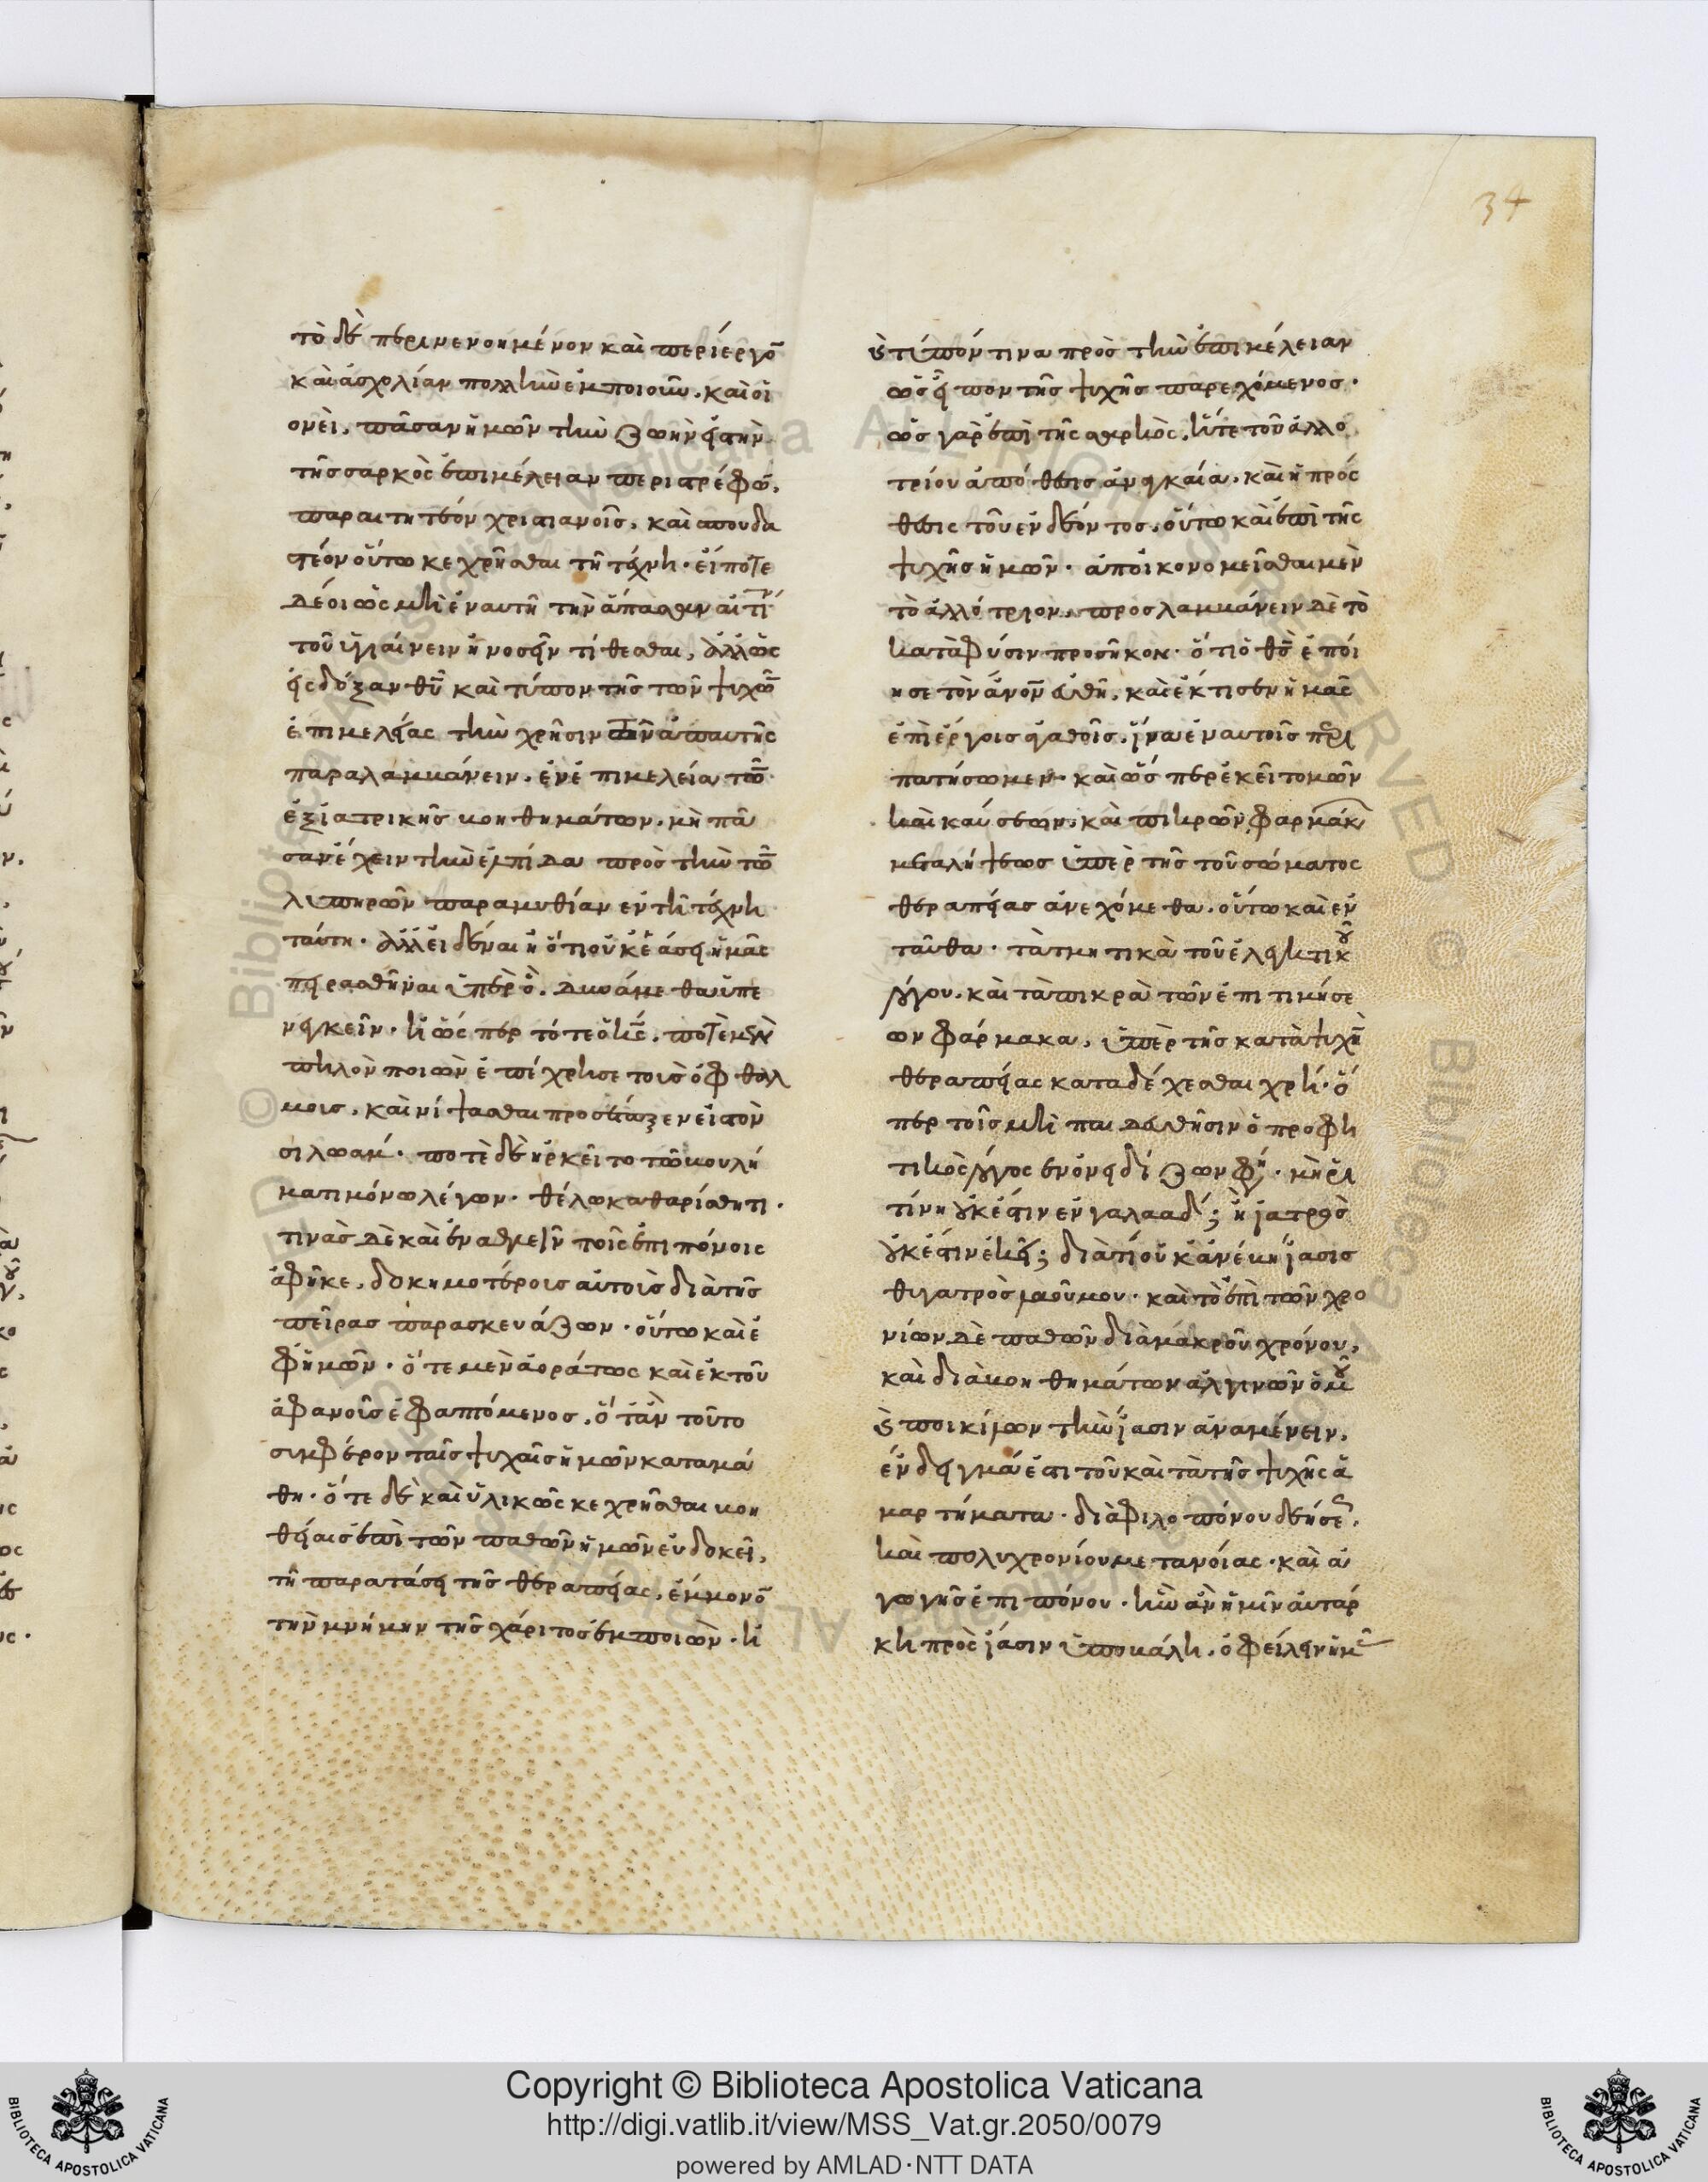 34
τὸ δὲ περινενοημένον καὶ περίεργο̅
καὶ ἀσχολίαν πολλὴν ἐμποιοῦν. καὶ οἱ
ονεὶ, πᾶσαν ἡμῶν τὴν ζωὴν εἰς τὴν
τῆς σαρκὸς ἐπιμέλειαν περιστρέφο̅,
παραιτητέον χριστιανοῖς, καὶ σπουδα
στέον οὕτω κεχρῆσθαι τῆ τέχνη. εἴποτε
δέοι ὡς μὴ ἐν αυτῆ τὴν ἅπασαν αἰτί
τοῦ ὑγιαίνειν ἢ νοσεῖν τίθεσθαι, ἀλλ' ὡς
εἰς δόξαν θυ̅ καὶ τύπον τῆς τῶν ψυχω̅
ἐπιμελείας τὴν χρῆσιν τῶν ἀπ αυτῆς
παραλαμβάνειν. ἐν ἐπιμελεία τω̅
ἐξ ἰατρικῆς βοηθημάτων. μὴ πᾶ
σαν ἔχειν τὴν ἐλπίδα πρὸς τὴν τω̅
λυπηρῶν παραμυθίαν ἐν τῆ τέχνη
ταύτη. ἀλλ' εἰδέναι ἢ ὅτι οὐκ ἐάσει ἡμᾶς
πειρασθῆναι ὑπὲρ ὃ. δυνάμεθα ὑπε
νεγκεῖν. ἢ ὥσπερ τότε ὁ κς̅, ποτὲ μὲν
πηλὸν ποιῶν ἐπέχρησε τοις ὀφθαλ
μοις. καὶ νίψασθαι προσέταξεν εἰς τὸν
σιλωάμ. ποτὲ δὲ ἠρκεῖτο τῶ βουλή
ματι μόνω λέγων. θέλω καθαρίσθητι.
τινὰς δὲ καὶ ἐναθλεῖν τοῖς ἐπιπόνοις
ἀφῆκε, δοκημοτέροις αὐτοὺς διὰ τῆς
πείρας παρασκευάζων. οὕτω καὶ ἐ
φ' ἡμῶν. ὅτε μὲν ἀοράτως καὶ ἐκ τοῦ
ἀφανοῦς ἐφαπτόμενος, ὅτ' ἂν τοῦτο
συμφέρον ταῖς ψυχαῖς ἡμῶν καταμά
θη. ὅτε δὲ καὶ ὑλικῶς κεχρῆσθαι βοη
θείαις ἐπὶ τῶν παθῶν ἡμῶν εὐδοκεῖ,
τῆ παρατάσει τῆς θεραπείας, ἔμμονο̅
τὴν μνήμην τῆς χάριτος ἐμποιῶν. ἢ
ὃ τύπόν τινα πρὸς τὴν ἐπιμέλειαν
ὡς εἶπον τῆς ψυχῆς παρεχόμενος.
ὡς γὰρ ἐπὶ τῆς σαρκὸς, ἥτε τοῦ ἀλλο
τρίου ἀπόθεσις ἀναγκαία. καὶ ἡ πρόσ
θεσις τοῦ ἐνδέοντος. οὕτω καὶ ἐπὶ τῆς
ψυχῆς ἡμῶν. ἀποἰκονομεῖσθαι μὲν
τὸ ἀλλότριον. προσλαμβάνειν δὲ τὸ
κατὰ φύσιν προσῆκον. ὅτι ὁ θς̅ ἐποί
ησε τὸν ἄνον̅ εὐθῆ. καὶ ἔκτισεν ἡμᾶς
ἐπὶ ἔργοις ἀγαθοῖς. ἵνα ἐν αυτοῖς περι
πατήσωμεν. καὶ ὥσπερ ἐκεῖ τομῶν
καὶ καύσεων. καὶ πικρῶν φαρμάκ
μεταλήψεως ὑπὲρ τῆς τοῦ σώματος
θεραπείας ἀνεχόμεθα. οὕτω καὶ ἐν
ταῦθα. τὰ τμητικὰ τοῦ ἐλεγκτικοῦ
λόγου. καὶ τὰ πικρὰ τῶν ἐπιτιμήσε
ων φάρμακα, ὑπὲρ τῆς κατὰ ψυχὴ̅
θεραπείας καταδέχεσθαι χρή. ὅ
περ τοῖς μὴ παιδευθῆσιν ὁ προφη
τικὸς λόγος ἐνονειδίζων φη. μὴ ῥι
τίνη οὐκ ἔστιν ἐν γαλααδ; ἢ ἰατρὸς
οὐκ ἔστιν ἐκεῖ; διατί οὐκ ἀνέβη ἴασις
θυγατρὸς λαοῦ μου. καὶ τὸ ἐπὶ τῶν χρο
νίων δὲ παθῶν διὰ μακροῦ χρόνου,
καὶ διὰ βοηθημάτων ἀλγινῶν ὁμοῦ
ὃ ποικίλων τὴν ἴασιν ἀναμένειν.
ἔνδειγμά ἐστι τοῦ καὶ τὰ τῆς ψυχῆς ἁ
μαρτήματα. διὰ φιλοπόνου δεήσε,
καὶ πολυχρονίου μετανοίας. καὶ ἀ
γωγῆς ἐπιπόνου. ἣν ἂν ἡμῖν αὐτάρ
κη πρὸς ἴασιν ὑποβάλη. ὀφείλειν ἡμ
Copyright © Biblioteca Apostolica Vaticana
http://digi.vatlib.it/view/MSS_Vat.gr.2050/0079
powered by AMLAD·NTT DATA